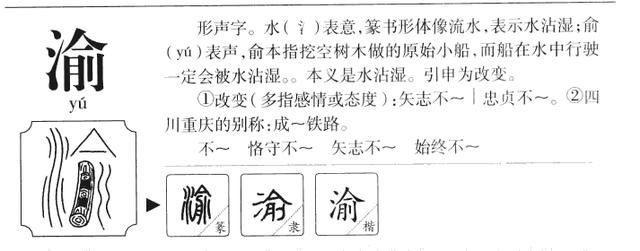 渝
yú
形声字。水(氵)表意,篆书形体像流水,表示水沾湿;俞
(yú)表声,俞本指挖空树木做的原始小船,而船在水中行驶
一定会被水沾湿。。本义是水沾湿。引申为改变。
①改变(多指感情或态度):矢志不～｜忠贞不～。②四
川重庆的别称:成～铁路。
不～ 恪守不～ 矢志不～ 始终不～
渝 渝 渝
篆 隶 楷